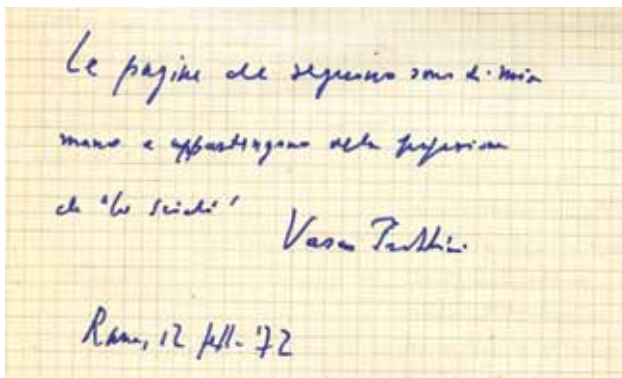 Le pagine che seguono sono di mia
mano e appartengono alla
de "lo scialo"
Vasco Pratolini
Roma, 12 '72